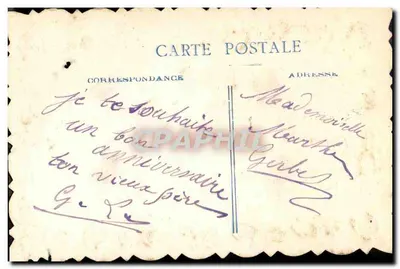 CARTE POSTALE
CORRESPONDANCE
ADRESSE
je te souhaite
un bon
anniversaire
ton vieux père
Mademoiselle
Marthe